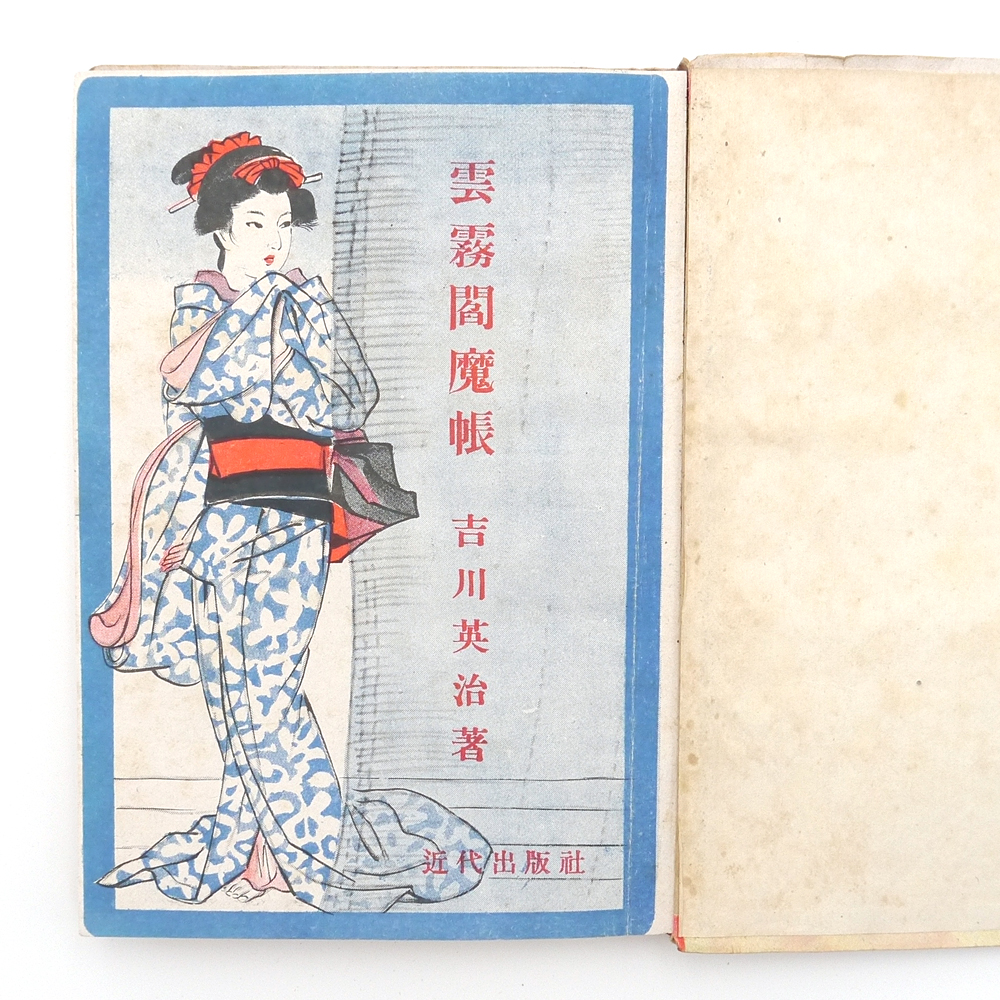 雲霧閻魔帳
吉川英治著
近代出版社